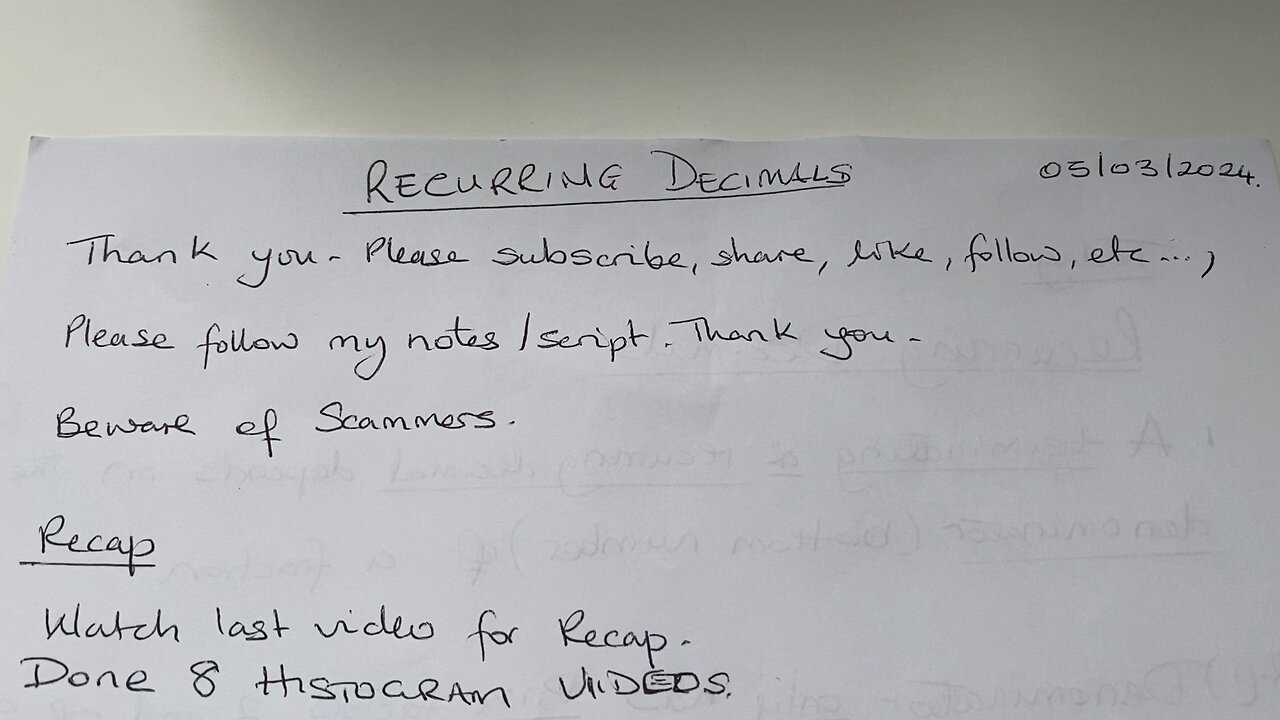 RECURRING DECIMALS 05/03/2024.
Thank you - Please subscribe, share, like, follow, etc...,
Please follow my notes/script. Thank you -
Beware of Scammers.
Recap
Watch last video for Recap.
Done 8 HISTOGRAM VIDEOS.